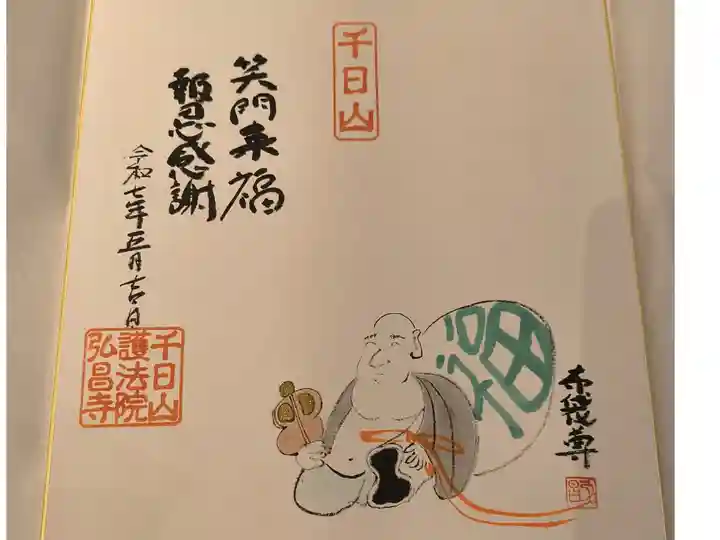 千日山
笑門来福
報恩感謝
令和七年正月吉日
千日山
護法院
弘昌寺
福
布袋尊